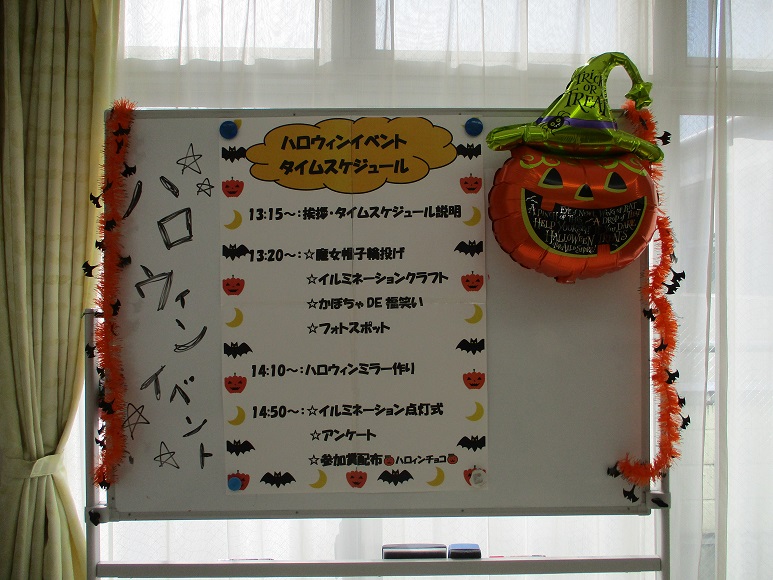 ハロウィンイベント
ハロウィンイベント
タイムスケジュール
13:15～:挨拶・タイムスケジュール説明
13:20～:☆魔女帽子輪投げ
☆イルミネーションクラフト
☆かぼちゃDE福笑い
☆フォトスポット
14:10～:ハロウィンミラー作り
14:50～:☆イルミネーション点灯式
☆アンケート
☆参加賞配布🎃ハロィンチョコ🎃
TRICK
OR
TREAT
HALLOWEEN